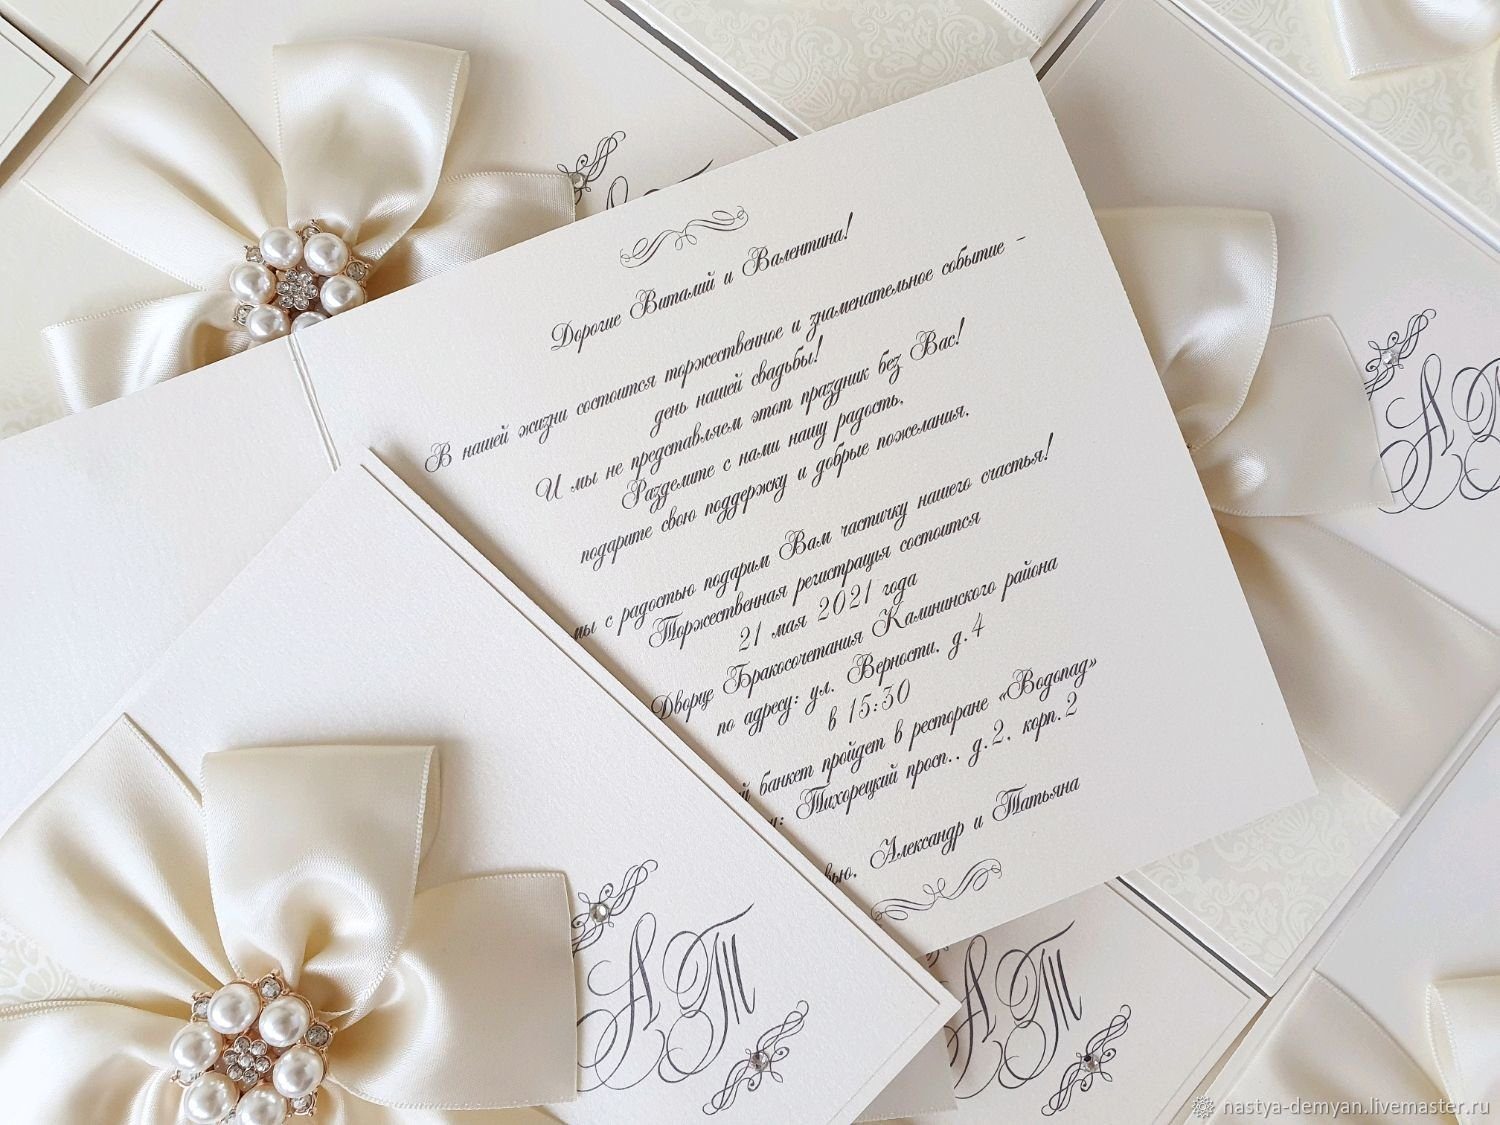 Дорогие Виталий и Валентина!
В нашей жизни состоится торжественное и знаменательное событие -
день нашей свадьбы!
И мы не представляем этот праздник без Вас!
Разделите с нами нашу радость,
подарите свою поддержку и добрые пожелания,
мы с радостью подарим Вам частичку нашего счастья!
Торжественная регистрация состоится
21 мая 2021 года
Дворце Бракосочетания Калининского района
по адресу: ул. Верности, д. 4
в 15:30
банкет пройдет в ресторане «Водопад»
Тихорецкий просп., д.2, корп.2
Александр и Татьяна
АТ
АТ
АТ
nastya-demyan.livemaster.ru